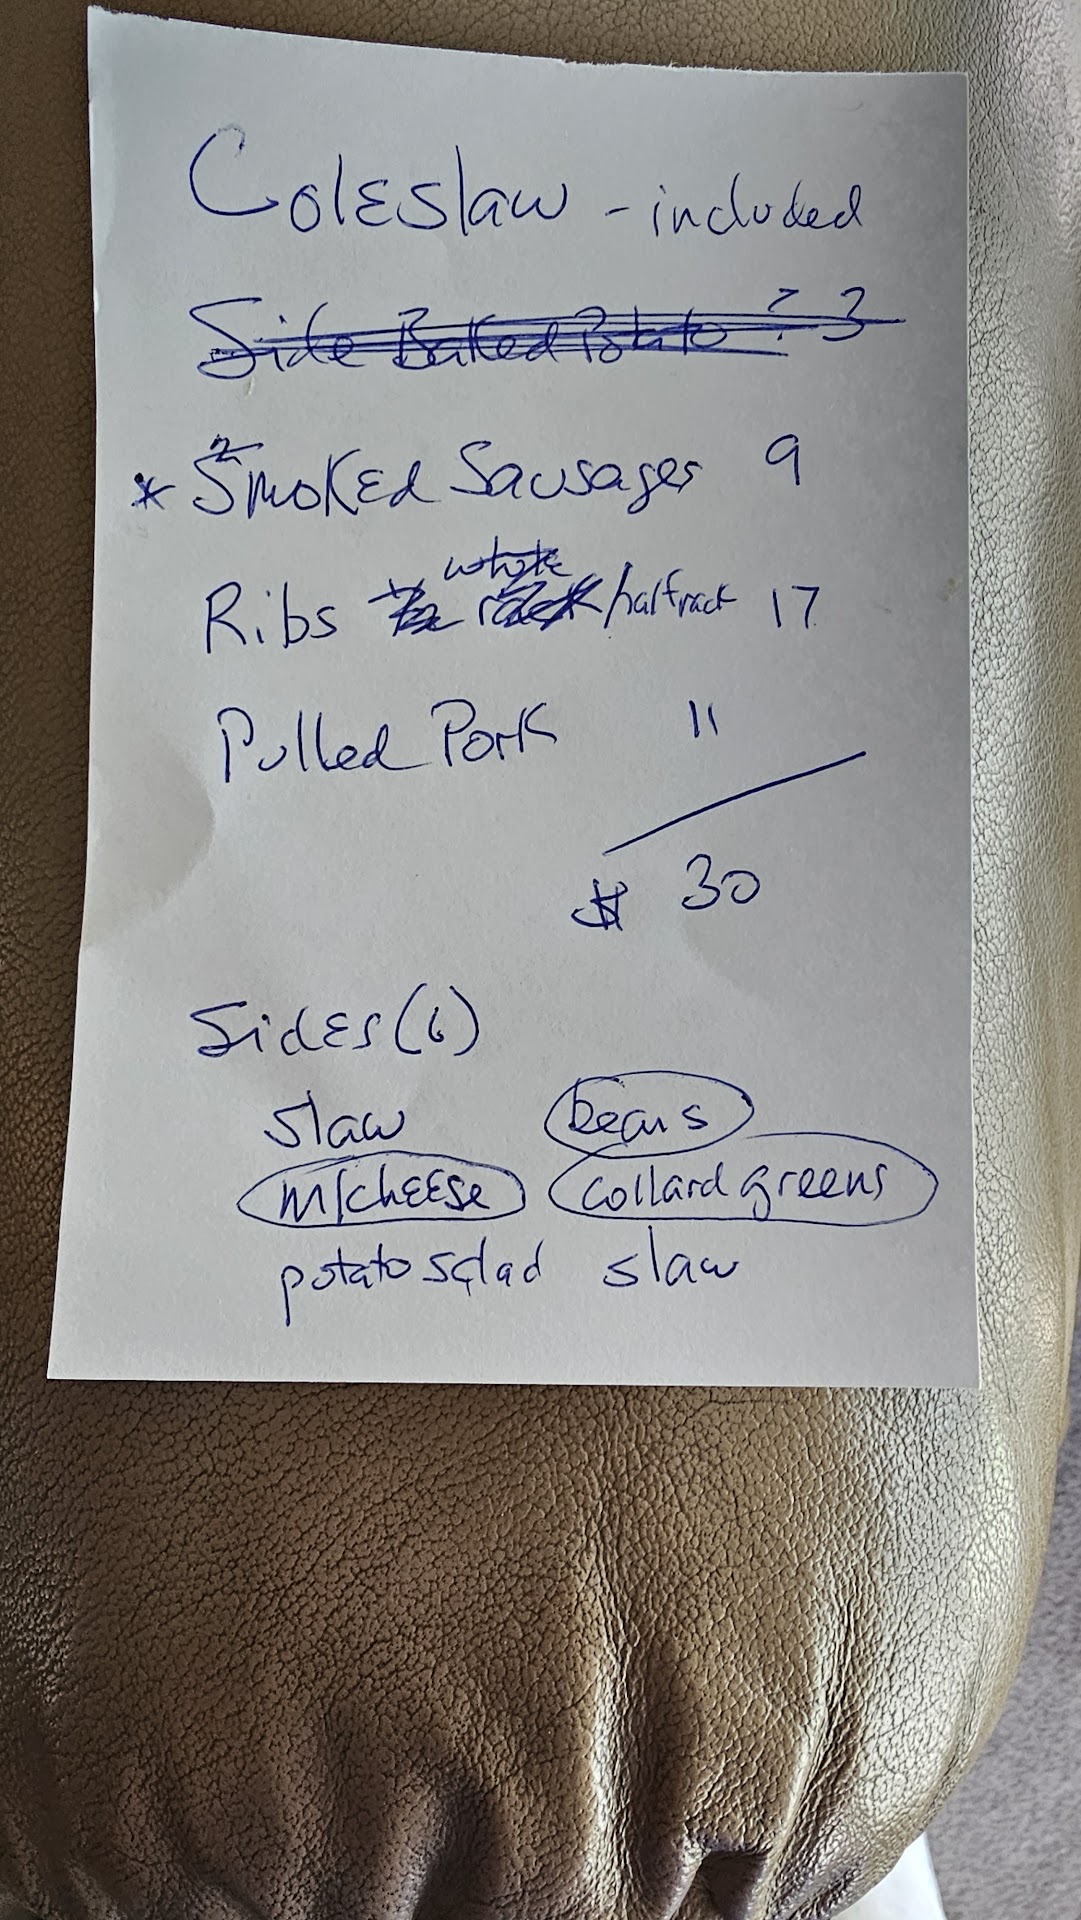 Coleslaw - included
Side Baked Potato ? 3
2
* Smoked Sausages 9
whole
Ribs rack /half rack 17
Pulled Pork 11
$ 30
Sides (6)
slaw beans
m/cheese collard greens
potato salad slaw